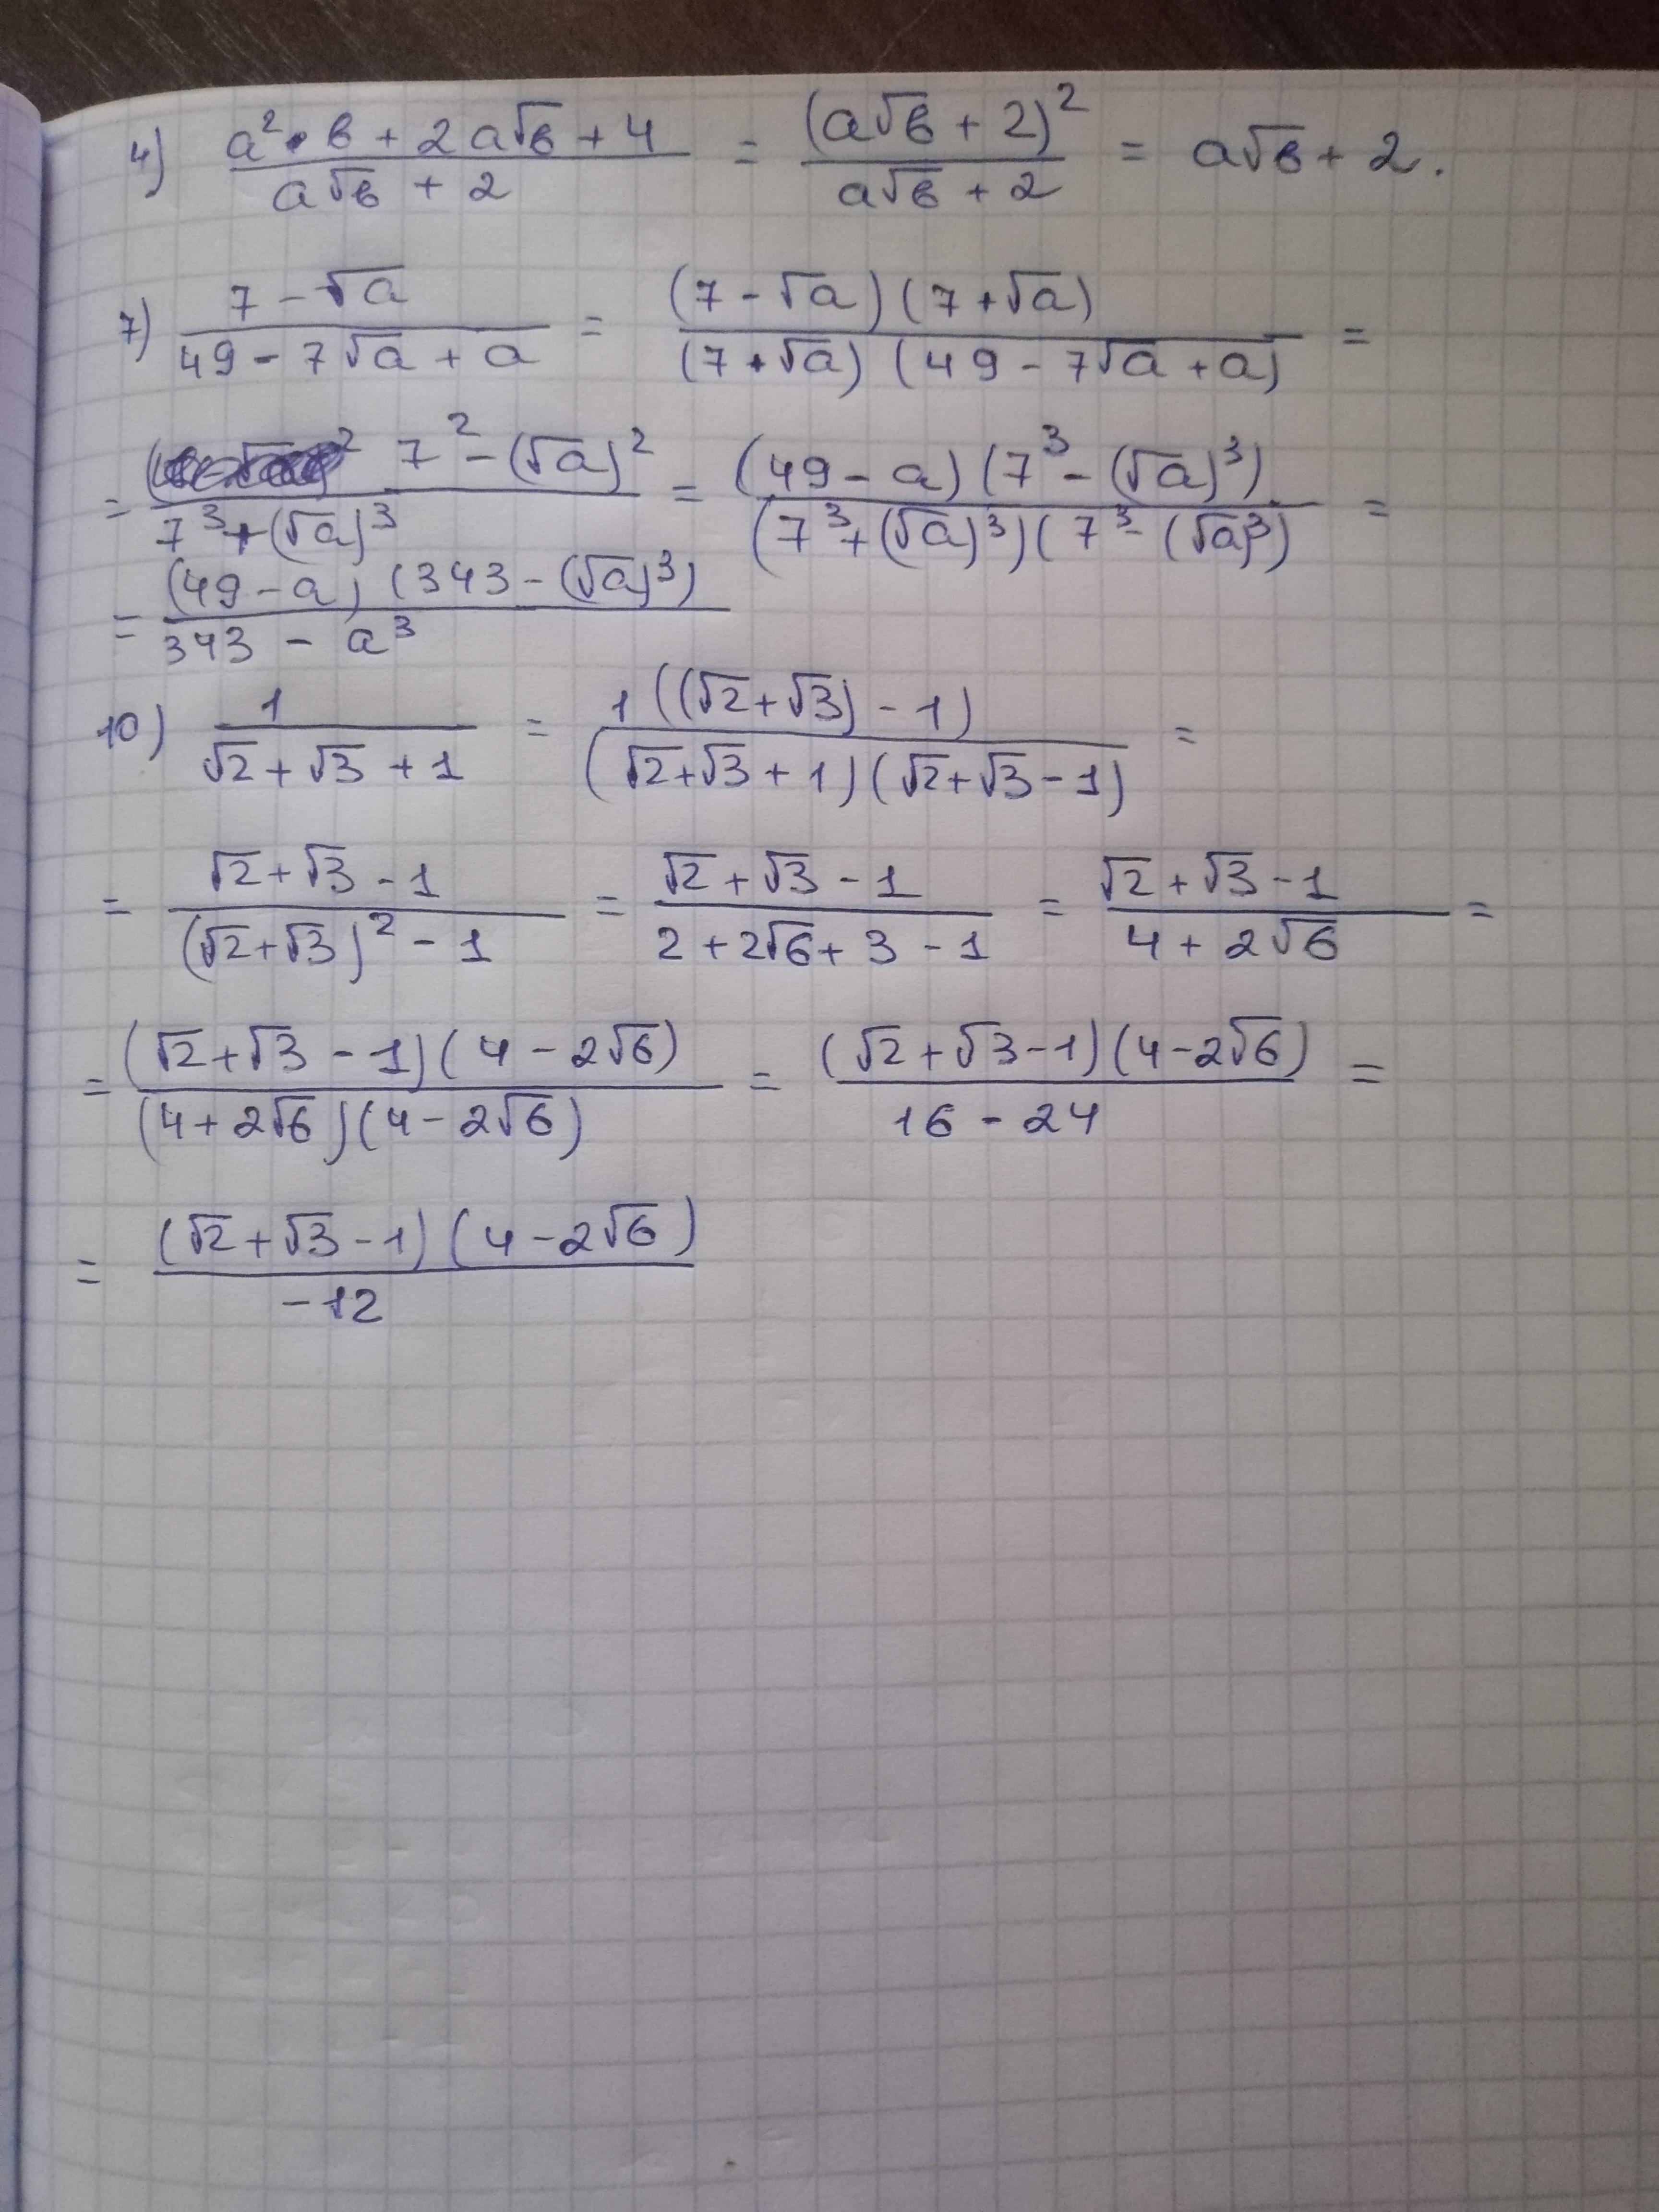 4) (a²·b + 2a√b + 4)/(a√b + 2) = (a√b + 2)²/(a√b + 2) = a√b + 2.
7) (7 - √a)/(49 - 7√a + a) = (7 - √a)(7 + √a)/((7 + √a)(49 - 7√a + a)) =
= (7² - (√a)²)/(7³ + (√a)³) = (49 - a)(7³ - (√a)³)/((7³ + (√a)³)(7³ - (√a)³)) =
= (49 - a)(343 - (√a)³)/(343 - a³)
10) 1/(√2 + √3 + 1) = 1((√2 + √3) - 1)/((√2 + √3 + 1)(√2 + √3 - 1)) =
= (√2 + √3 - 1)/((√2 + √3)² - 1) = (√2 + √3 - 1)/(2 + 2√6 + 3 - 1) = (√2 + √3 - 1)/(4 + 2√6) =
= (√2 + √3 - 1)(4 - 2√6)/((4 + 2√6)(4 - 2√6)) = (√2 + √3 - 1)(4 - 2√6)/(16 - 24) =
= (√2 + √3 - 1)(4 - 2√6)/(-12)